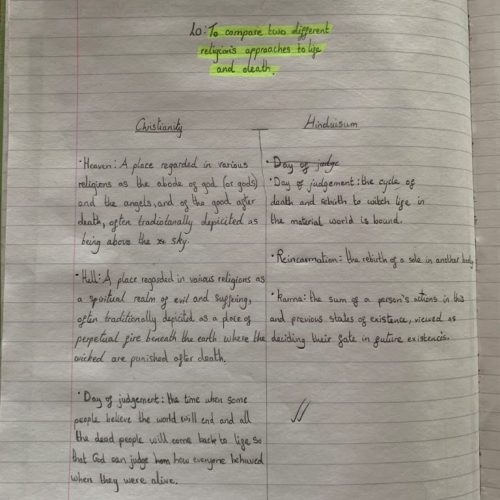 LO: To compare two different
religion's approaches to life
and death.
Christianity
• Heaven: A place regarded in various
religions as the abode of god (or gods)
and the angels, and of the good after
death, often tradiotanally depicited as
being above the sky.
• Hell: A place regarded in various religions as
a spiritual realm of evil and suffering,
often traditionally depicted as a place of
perpetual fire beneath the earth where the
wicked are punished after death.
• Day of judgement: the time when some
people believe the world will end and all
the dead people will come back to life so
that God can judge how everyone behaved
when they were alive.
Hinduisum
• Day of judge
• Day of judgement: the cycle of
death and to witch life in
the material world is bound.
• Reincarnation: the rebirth of a sole in another body
• Karma: the sum of a person's actions in this
and previous states of existence, viewed as
deciding their fate in future existencis.